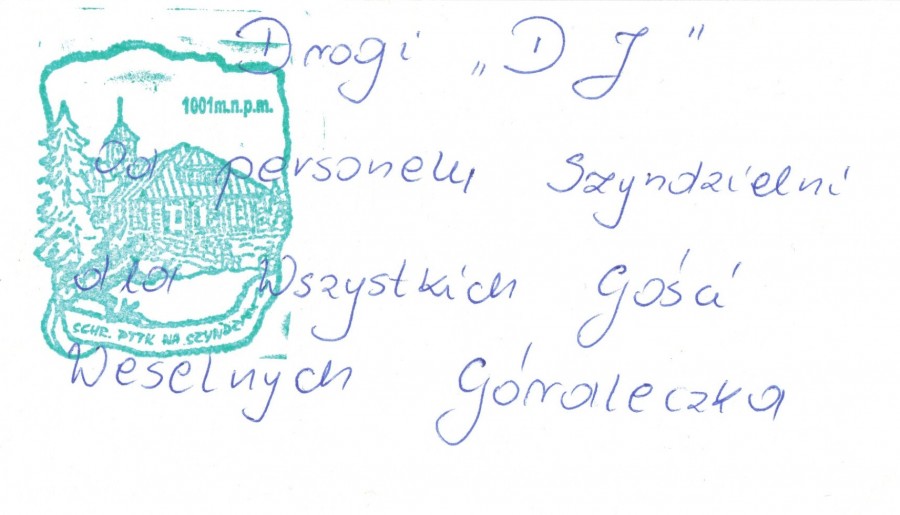 Drogi „DJ”
1001 m.n.p.m.
Od personelu Szyndzielni
dla Wszystkich Gości
SCHR. PTTK NA SZYNDZ
Weselnych Góraleczka